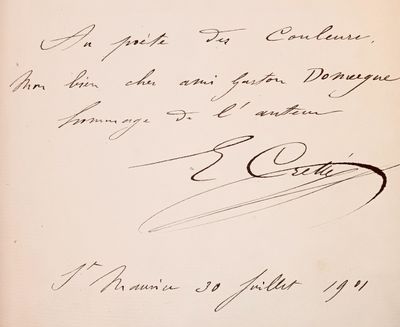 Au poète des Couleurs.
Mon bien cher ami Gaston Domergue
hommage de l'auteur
E Cretté
St Maurice 30 Juillet 1901